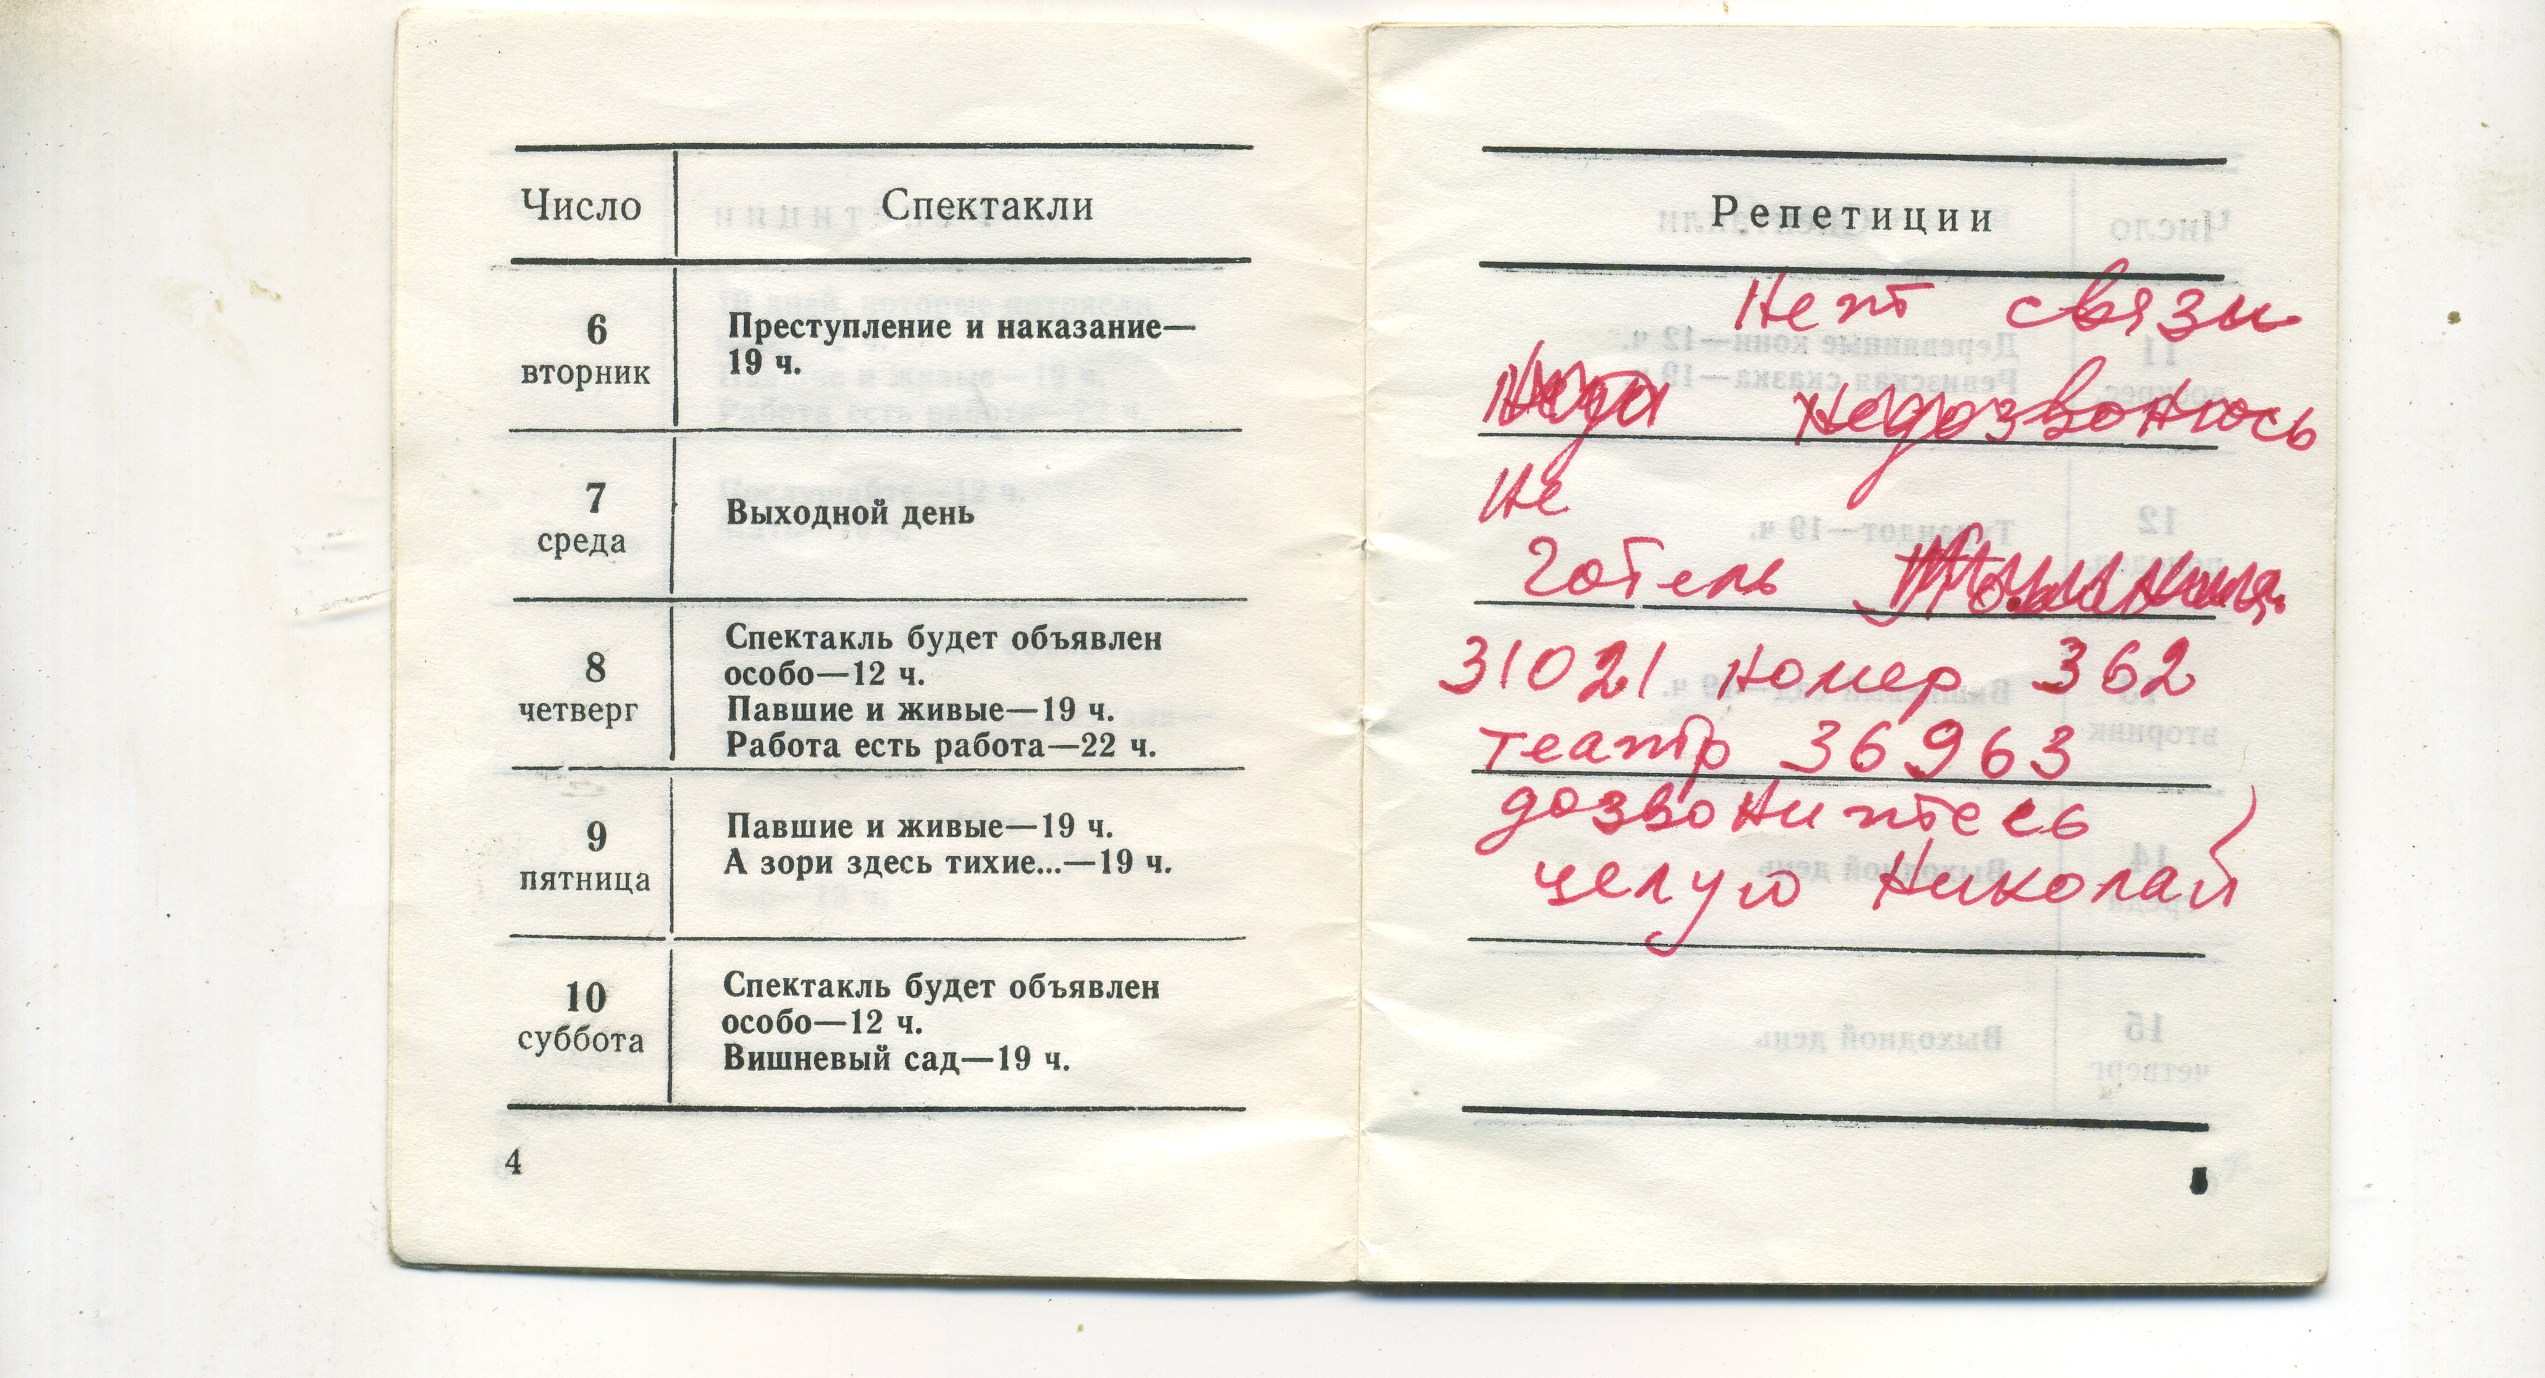 Число Спектакли
6
вторник
Преступление и наказание—
19 ч.
7
среда
Выходной день
8
четверг
Спектакль будет объявлен
особо—12 ч.
Павшие и живые—19 ч.
Работа есть работа—22 ч.
9
пятница
Павшие и живые—19 ч.
А зори здесь тихие...—19 ч.
10
суббота
Спектакль будет объявлен
особо—12 ч.
Вишневый сад—19 ч.
4
Репетиции
Нет связи
недозвонюсь
Не
Готель
31021 номер 362
театр 36963
дозвонитесь
целую Николай